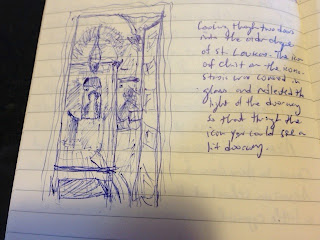 Looking through two doors
into the side chapel
of St. Loukas. The icon
of Christ on the icono-
stasis was covered in
glass and reflected the
light of the doorway
so that through the
icon you could see a
lit doorway.